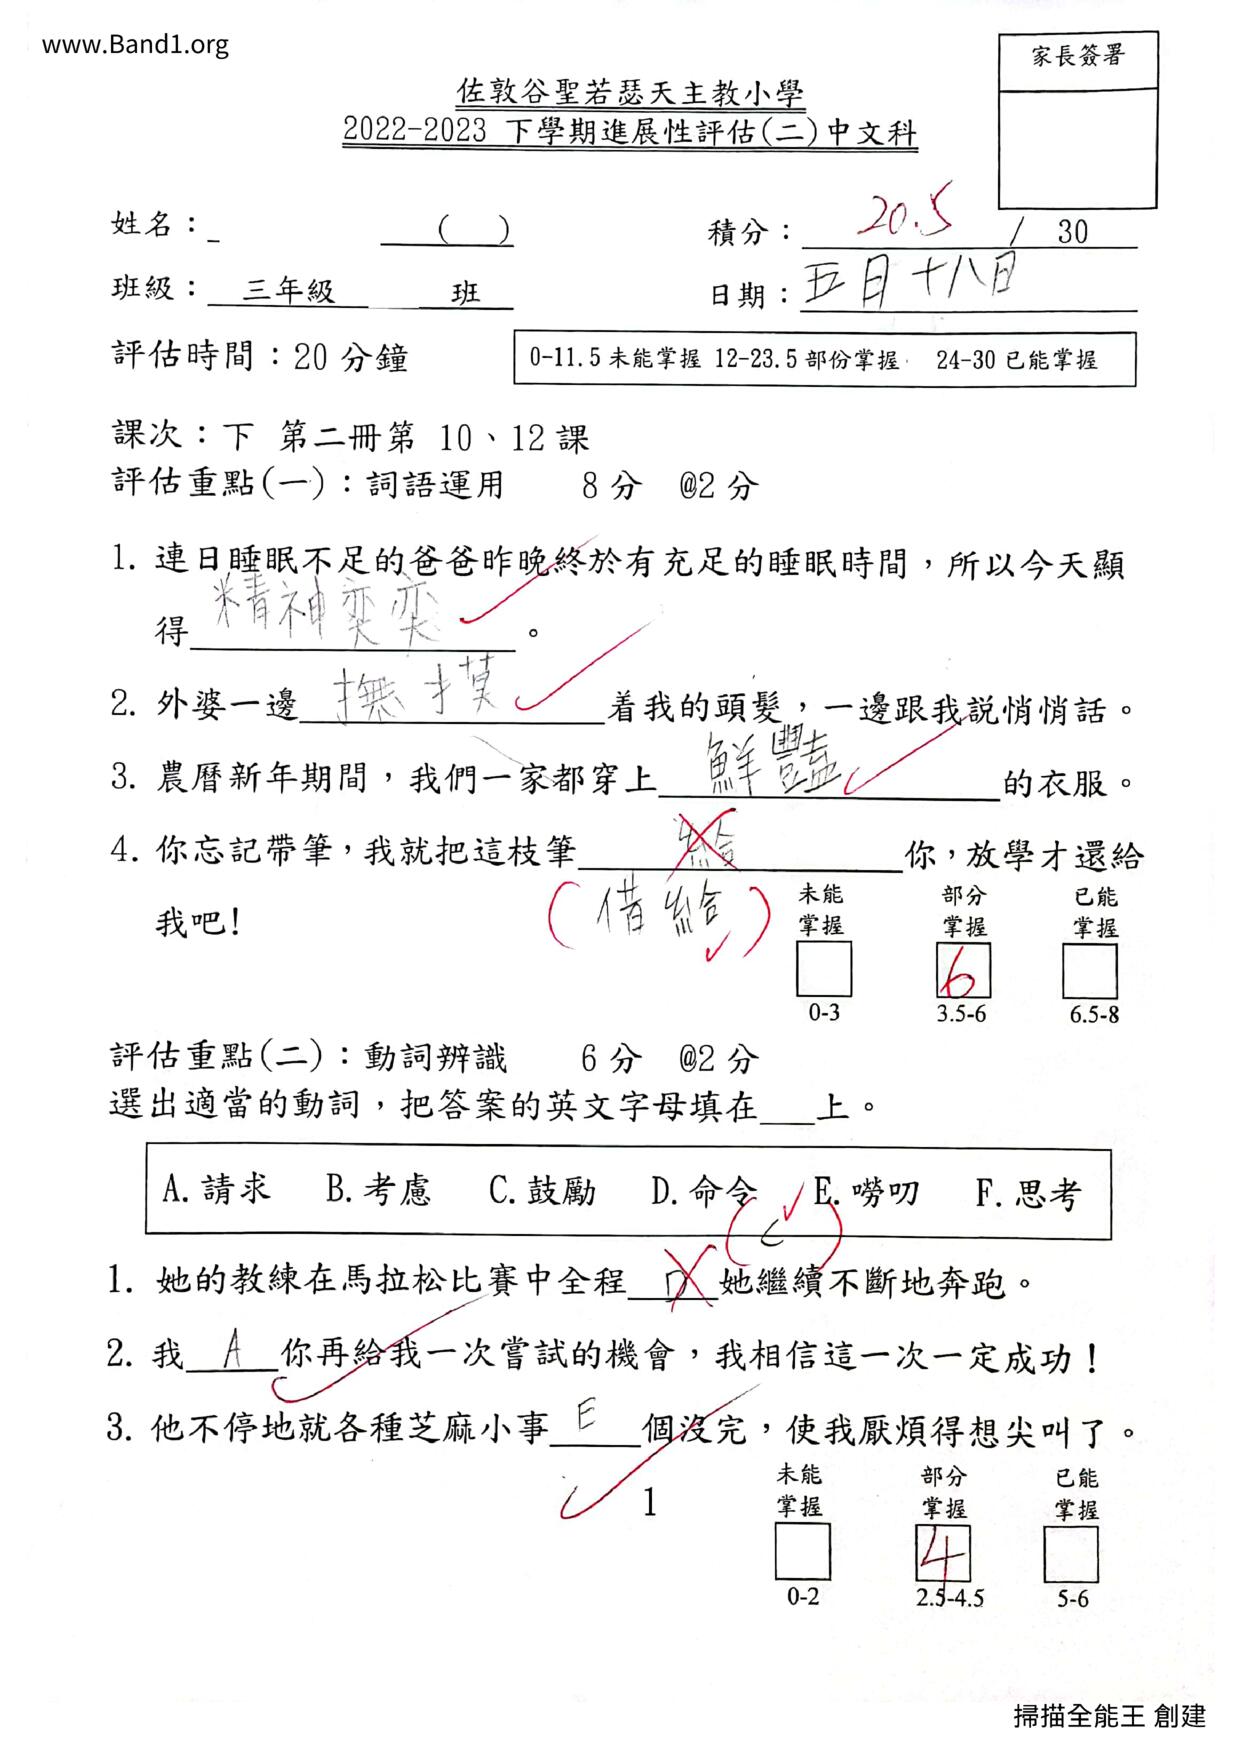 www.Band1.org
家長簽署
佐敦谷聖若瑟天主教小學
2022-2023 下學期進展性評估(二)中文科
姓名：_ ( ) 積分： 20.5 / 30
班級： 三年級 班 日期：五月十八日
評估時間：20 分鐘 0-11.5 未能掌握 12-23.5 部份掌握 24-30 已能掌握
課次：下 第二冊第 10、12 課
評估重點(一)：詞語運用 8 分 @2 分
1. 連日睡眠不足的爸爸昨晚終於有充足的睡眠時間，所以今天顯
得精神奕奕。
2. 外婆一邊撫摸着我的頭髮，一邊跟我説悄悄話。
3. 農曆新年期間，我們一家都穿上鮮豔的衣服。
4. 你忘記帶筆，我就把這枝筆給你，放學才還給
我吧！ (借給) 未能掌握 部分掌握 已能掌握
6
0-3 3.5-6 6.5-8
評估重點(二)：動詞辨識 6 分 @2 分
選出適當的動詞，把答案的英文字母填在___上。
A.請求 B.考慮 C.鼓勵 D.命令 E.嘮叨 F.思考
(C)
1. 她的教練在馬拉松比賽中全程 D 她繼續不斷地奔跑。
2. 我 A 你再給我一次嘗試的機會，我相信這一次一定成功！
3. 他不停地就各種芝麻小事 E 個沒完，使我厭煩得想尖叫了。
1 未能掌握 部分掌握 已能掌握
4
0-2 2.5-4.5 5-6
掃描全能王 創建